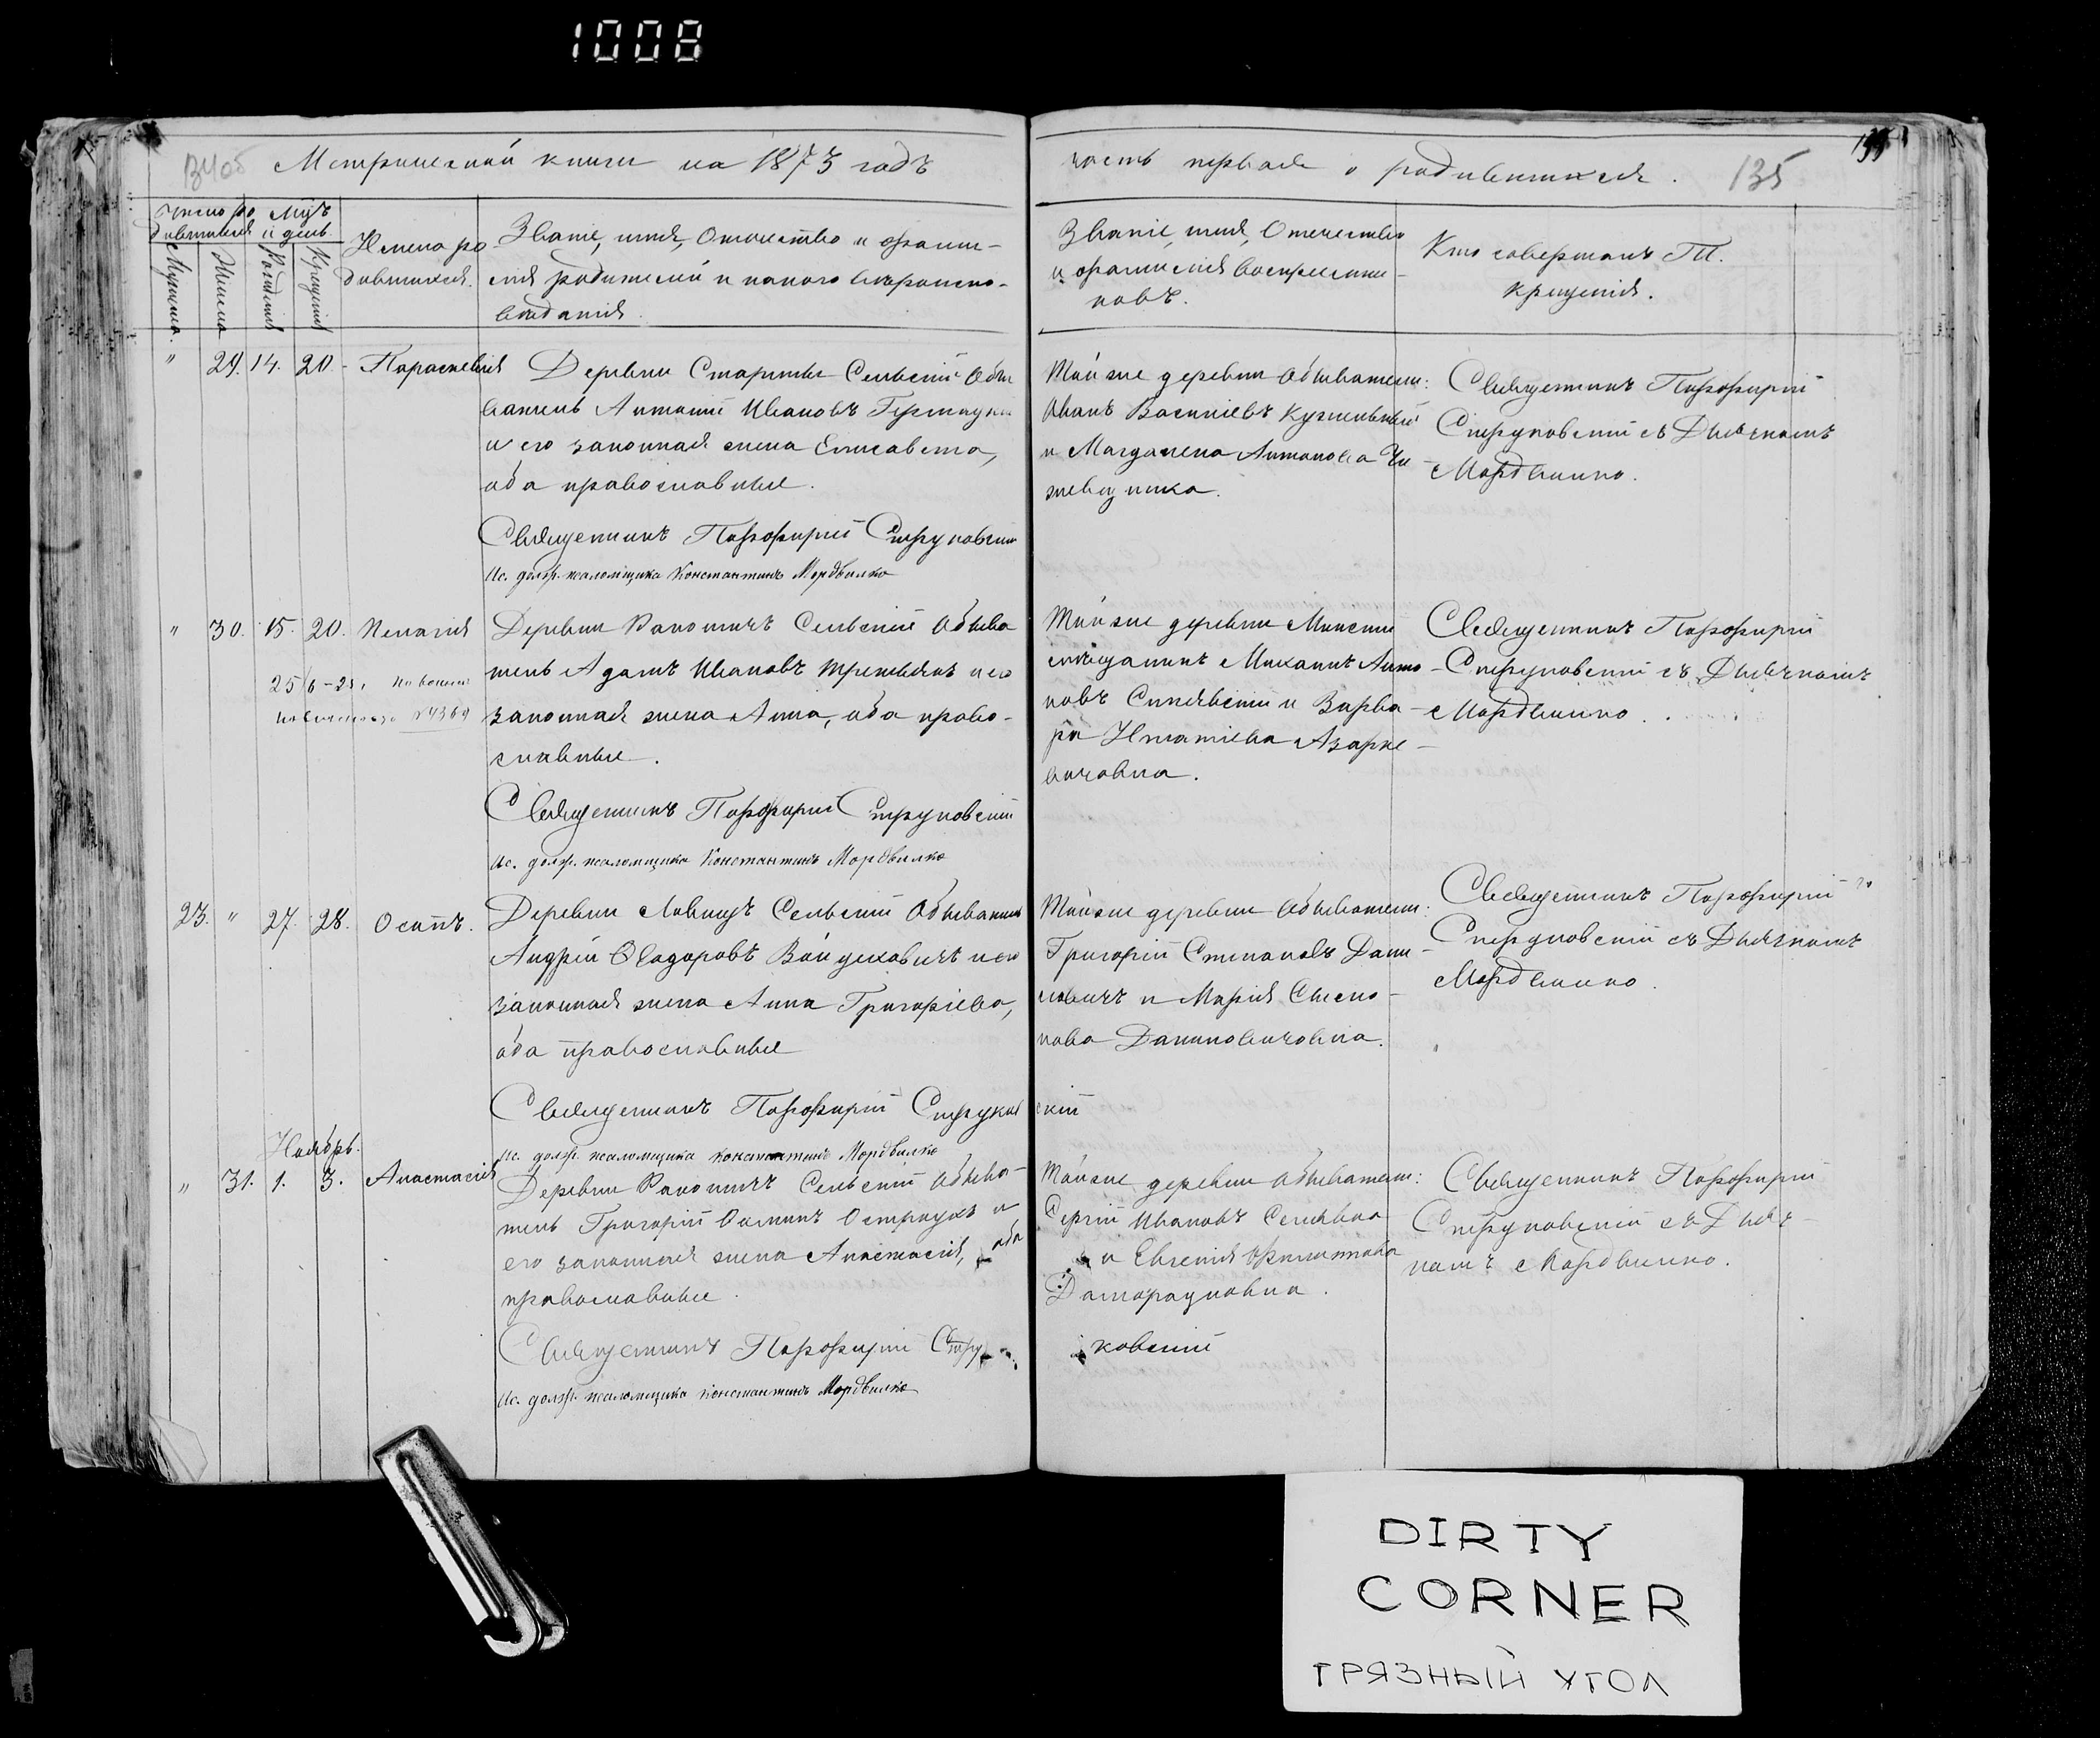 1008
134об Метрической книги на 1873 годъ
часть первая о родившихся. 135
Число ро
дившихся
Мцъ
и день
Мужеска.
Женска
Рожденія
Крещенія
Имена ро
дившихся.
Званіе, имя, Отчество и фами-
лія родителей и какого вѣроиспо-
вѣданія.
Званіе, имя, Отчество
и фамилія воспріемни-
ковъ.
Кто совершалъ Т.
крещенія.
" 29. 14. 20. Параскевія
Деревни Старины Сельскій Обы
ватель Антоній Ивановъ
и его законная жена Елисавета,
оба православные.
Священникъ Порфирій Струковскій
Ис. долж. псаломщика Константинъ Мордвилко
Той же деревни Обыватели:
Иванъ Василіевъ
и Магдалена Антонова
Священникъ Порфирій
Струковскій съ Дьячкомъ
Мордвилко.
" 30. 15. 20. Пелагія
25/6-21.
№4369
Деревни Сельскій Обыва
тель Адамъ Ивановъ Третьякъ и его
законная жена Анна, оба право-
славные.
Священникъ Порфирій Струковскій
Ис. долж. псаломщика Константинъ Мордвилко
Той же деревни Минскій
мѣщанинъ Михаилъ Анто-
новъ и Варва-
ра Игнатіева Азарке-
вичовна.
Священникъ Порфирій
Струковскій съ Дьячкомъ
Мордвилко.
23. " 27. 28. Осипъ.
Деревни Сельскій Обыватель
Андрей Ѳеодоровъ Войцеховичъ и его
законная жена Анна Григоріева,
оба православные
Священникъ Порфирій Струков скій
Ис. долж. псаломщика Константинъ Мордвилко
Той же деревни Обыватели:
Григорій Степановъ Дани-
ловичъ и Марія
нова Даниловичовна.
Священникъ Порфирій
Струковскій съ Дьячкомъ
Мордвилко.
Ноябрь.
" 31. 1. 3. Анастасія
Деревни Сельскій Обыва-
тель Григорій Осиповъ Остроухъ и
его законная жена Анастасія, оба
православные.
Священникъ Порфирій Стру ковскій
Ис. долж. псаломщика Константинъ Мордвилко
Той же деревни Обыватели:
Сергій Ивановъ
и Евгенія Филиппова
Священникъ Порфирій
Струковскій съ Дьяч-
комъ Мордвилко.
DIRTY
CORNER
ГРЯЗНЫЙ УГОЛ